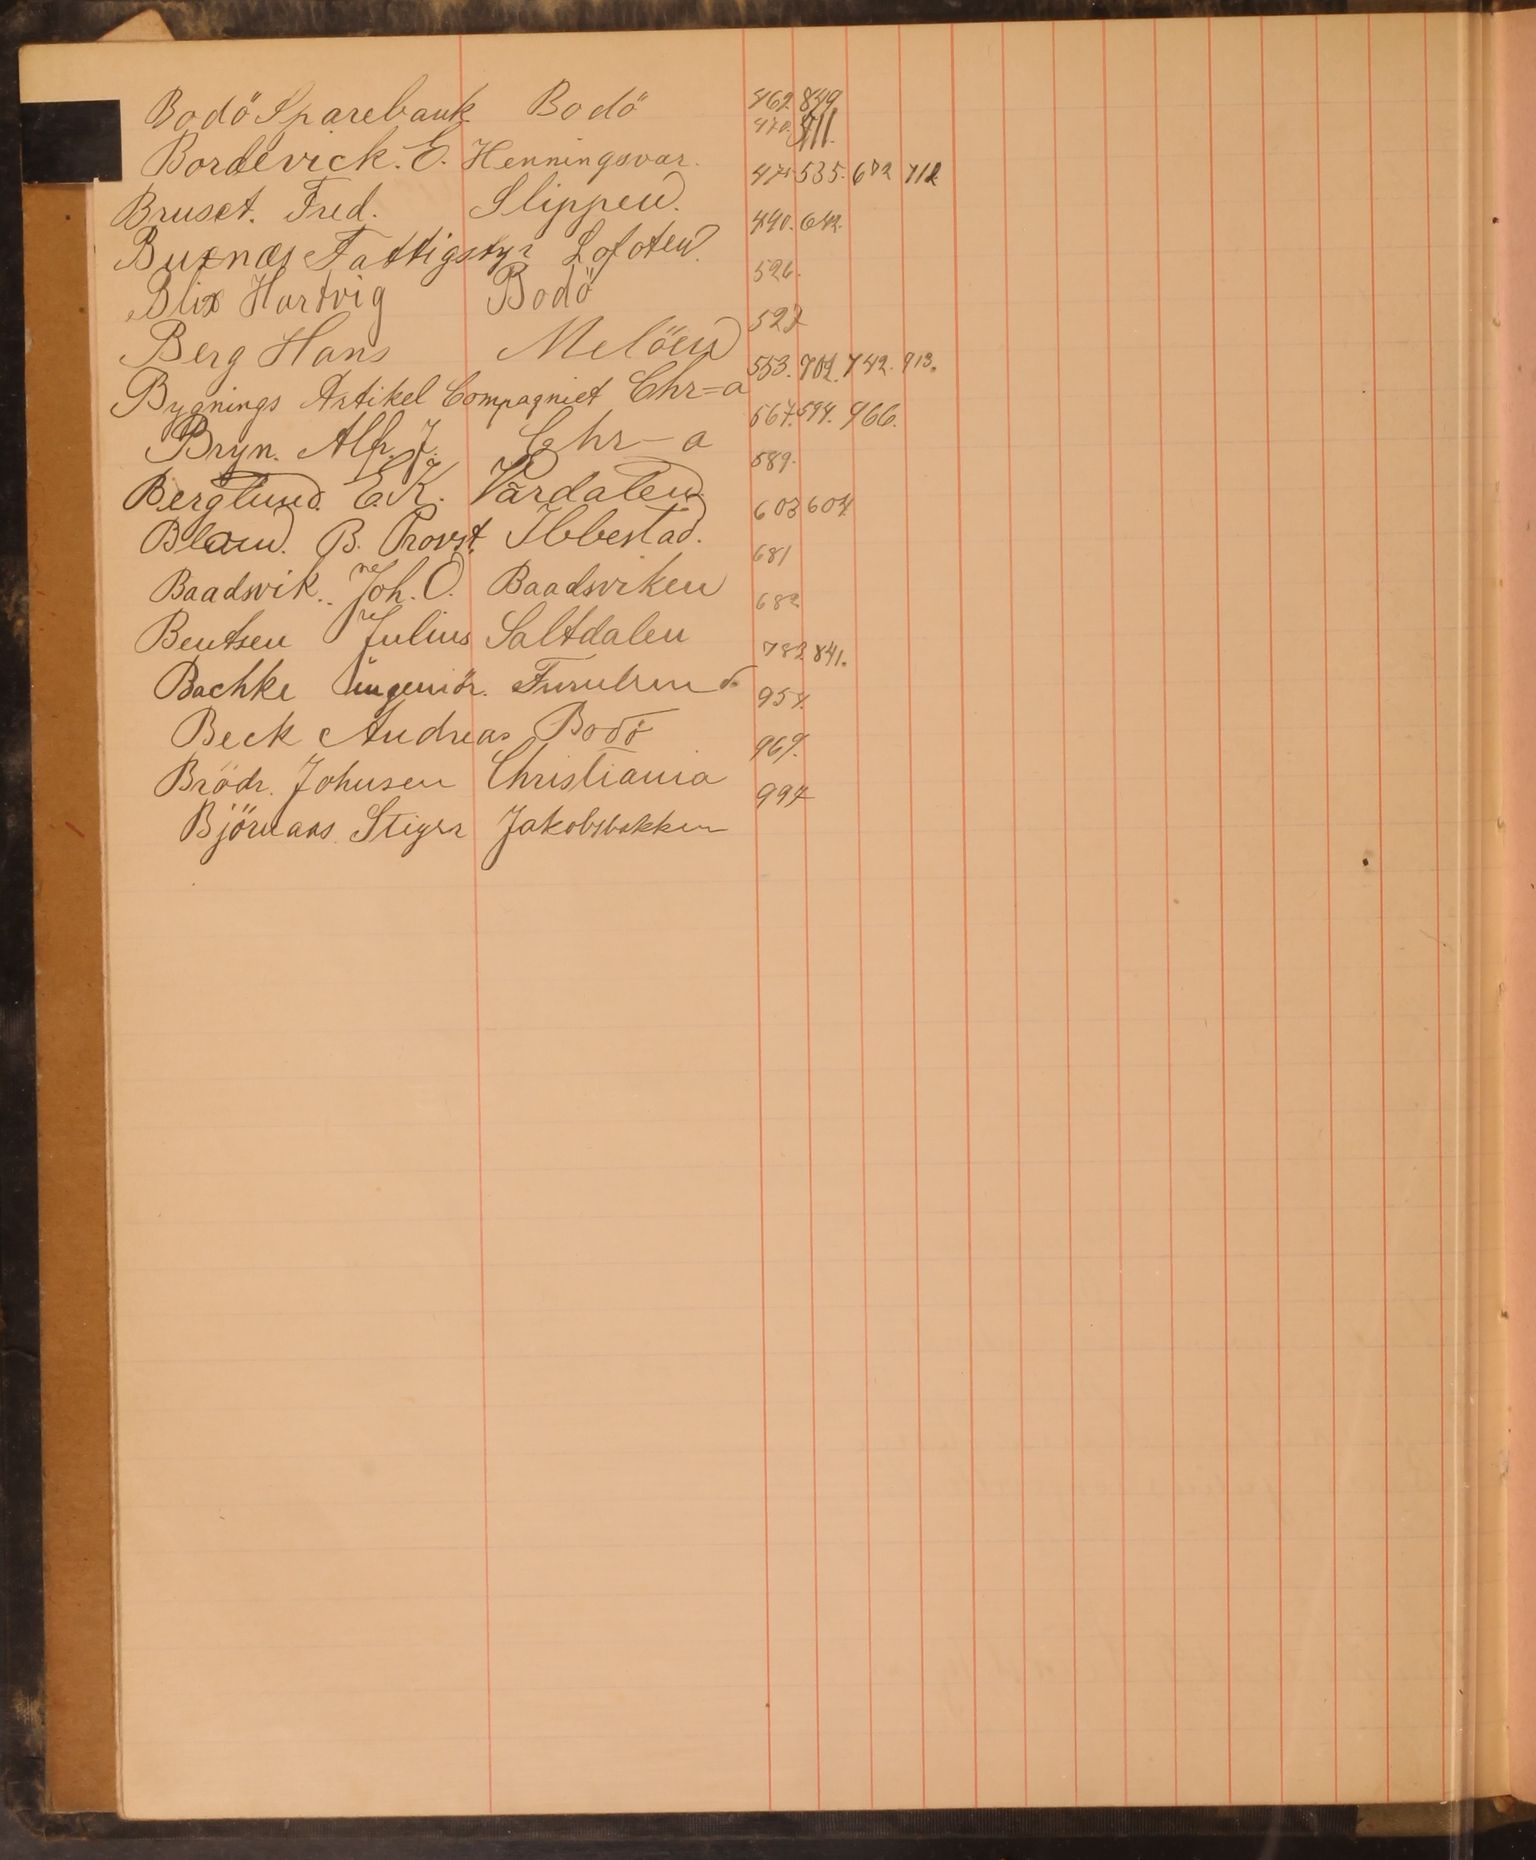 Bodö Sparebank Bodö 462 849
Bordevick. E. Henningsvær. 470. 511.
Bruset. Fred. Slippen. 475 535. 672 712
Buxnæs Fattigstyr Lofoten. 490. 642.
Blix Hartvig Bodö 526.
Berg Hans Melöen 527
Bygnings Artikel Compagniet Chr=a 553. 702. 742. 913.
Bryn. Alfr. J. Chr-a 567. 594. 966.
Berglund. E. K. Värdalen 589.
B. Provst. Ibbestad. 603 604
Baadsvik. Joh. O. Baadsviken 681
Bentsen Julius Saltdalen 682
Bachke Ingeniör. Furulund 782 841.
Beck Andreas Bodö 954.
Brödr. Johnsen Christiania 969.
Björnaas Stiger Jakobsbakken 997